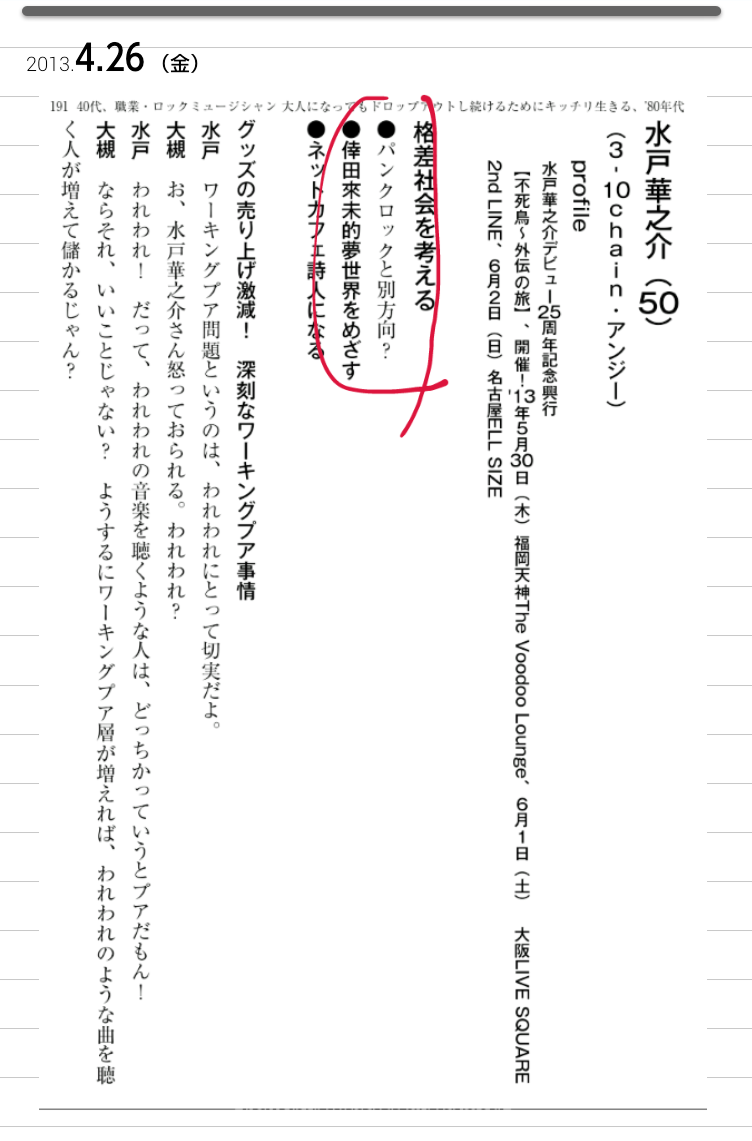 2013.4.26（金）
191 40代、職業・ロックミュージシャン 大人になってもドロップアウトし続けるためにキッチリ生きる、'80年代
水戸華之介（50）
（3-10chain・アンジー）
profile
水戸華之介デビュー25周年記念興行
【不死鳥～外伝の旅】、開催！'13年5月30日（木）福岡天神The Voodoo Lounge、6月1日（土）　大阪LIVE SQUARE
2nd LINE、6月2日（日）名古屋ELL SIZE
格差社会を考える
●パンクロックと別方向？
●倖田來未的夢世界をめざす
●ネットカフェ詩人になる
グッズの売り上げ激減！　深刻なワーキングプア事情
水戸　ワーキングプア問題というのは、われわれにとって切実だよ。
大槻　お、水戸華之介さん怒っておられる。われわれ？
水戸　われわれ！　だって、われわれの音楽を聴くような人は、どっちかっていうとプアだもん！
大槻　ならそれ、いいことじゃない？　ようするにワーキングプア層が増えれば、われわれのような曲を聴
く人が増えて儲かるじゃん？